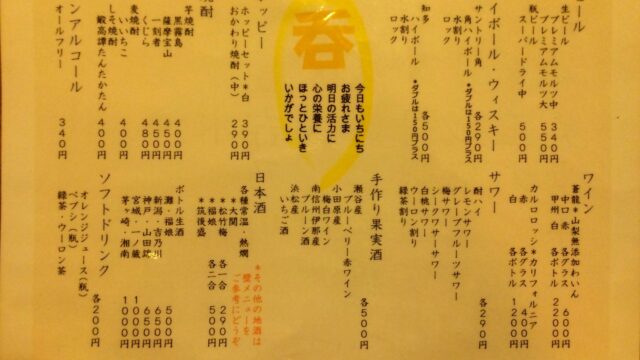 ール
生ビール
プレミアムモルツ中 340円
プレミアムモルツ大 550円
瓶ビール
スーパードライ中 500円
イボール・ウィスキー
サントリー角
角ハイボール 各290円
水割り *ダブルは150円プラス
ロック
知多
ハイボール 各500円
水割り *ダブルは150円プラス
ロック
呑
今日もいちにち
お疲れさま
明日の活力に
心の栄養に
ほっとひといき
いかがでしょ
ッピー
ホッピーセット*白 390円
おかわり焼酎(中) 290円
焼酎
芋焼酎
黒霧島 400円
薩摩宝山 450円
一刻者 450円
くじら 480円
麦焼酎
いいちこ 400円
しそ焼酎
鍛高譚たんたかたん 400円
ンアルコール
オールフリー 340円
ワイン
蒼龍*山梨無添加わいん
中口 赤 各グラス 600円
甲州 白 各ボトル 2200円
カルロロッシ*カリフォルニア
赤 各グラス 400円
白 各ボトル 1200円
サワー
酎ハイ
レモンサワー
グレープフルーツサワー
梅サワー
シークワーサーサワー
白桃サワー
ウーロン割り
緑茶割り 各290円
手作り果実酒
瀬谷産
ブルーベリー赤ワイン
小田原産
梅白ワイン
南信州伊那産
ブルーン酒
浜松産
いちご酒 各500円
日本酒
各種常温・熱燗
*大関 各一合 290円
*松竹梅 各二合 500円
*福娘
*筑後盛
*その他の地酒は
壁メニューを
ご参考にどうぞ
ボトル生酒
灘・福娘 500円
新潟・吉乃川 650円
神戸・山田錦 650円
宮城・一ノ蔵 1000円
茅ヶ崎・湘南 1000円
ソフトドリンク
オレンジジュース(瓶)
ペプシ(瓶)
緑茶・ウーロン茶 各200円